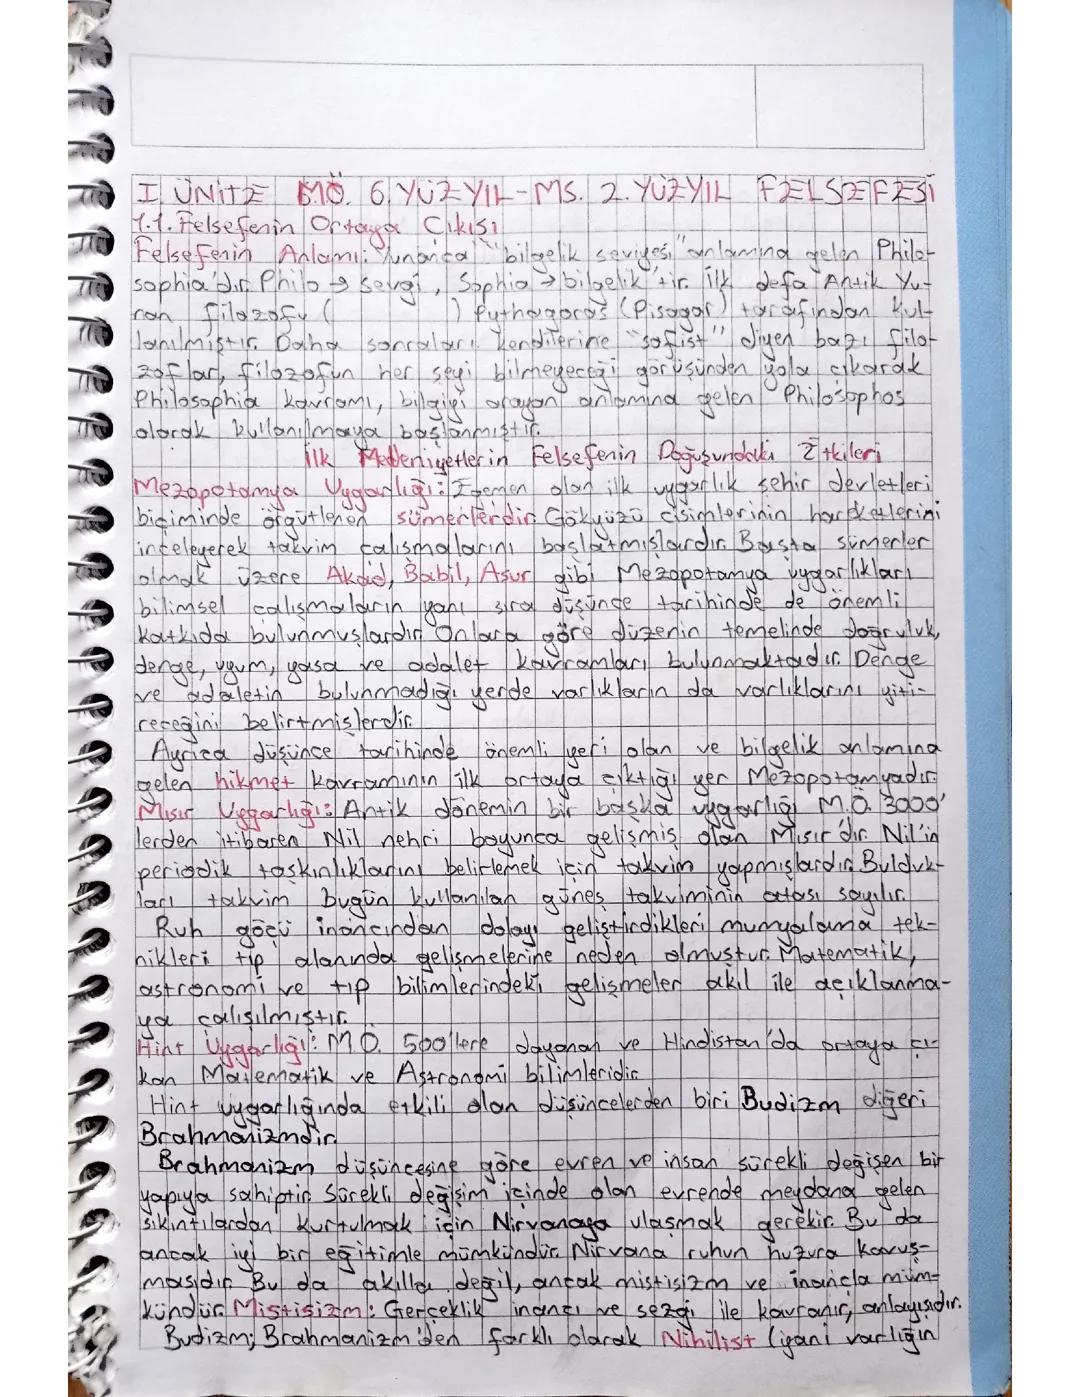 I. ÜNİTE MÖ. 6. YÜZYIL - MS. 2. YÜZYIL FELSEFESİ
1.1. Felsefenin Ortaya Çıkışı
Felsefenin Anlamı: Yunanca "bilgelik seviyesi" anlamına gelen Philo-
sophia'dır. Philo → sevgi, Sophia → bilgelik'tir. İlk defa Antik Yu-
nan filozofu ( ) Pythagoras (Pisagor) tarafından kul-
lanılmıştır. Daha sonraları kendilerine "sofist" diyen bazı filo-
zoflar, filozofun her şeyi bilmeyeceği görüşünden yola çıkarak
Philosophia kavramı, bilgiyi arayan anlamına gelen Philosophos
olarak kullanılmaya başlanmıştır.
İlk Medeniyetlerin Felsefenin Doğuşundaki Etkileri
Mezopotamya Uygarlığı: Egemen olan ilk uygarlık şehir devletleri
biçiminde örgütlenen sümerlerdir. Gökyüzü cisimlerinin hareketlerini
inceleyerek takvim çalışmalarını başlatmışlardır. Başta sümerler
olmak üzere Akad, Babil, Asur gibi Mezopotamya uygarlıkları
bilimsel çalışmaların yanı sıra düşünce tarihinde de önemli
katkıda bulunmuşlardır. Onlara göre düzenin temelinde doğruluk,
denge, uyum, yasa ve adalet kavramları bulunmaktadır. Denge
ve adaletin bulunmadığı yerde varlıkların da varlıklarını yiti-
receğini belirtmişlerdir.
Ayrıca düşünce tarihinde önemli yeri olan ve bilgelik anlamına
gelen hikmet kavramının ilk ortaya çıktığı yer Mezopotamyadır.
Mısır Uygarlığı: Antik dönemin bir başka uygarlığı M.Ö. 3000'
lerden itibaren Nil nehri boyunca gelişmiş olan Mısır'dır. Nil'in
periodik taşkınlıklarını belirlemek için takvim yapmışlardır. Bulduk-
ları takvim bugün kullanılan güneş takviminin atası sayılır.
Ruh göçü inancından dolayı geliştirdikleri mumyalama tek-
nikleri tıp alanında gelişmelerine neden olmuştur. Matematik,
astronomi ve tıp bilimlerindeki gelişmeler akıl ile açıklanma-
ya çalışılmıştır.
Hint Uygarlığı: M.Ö. 500'lere dayanan ve Hindistan'da ortaya çı-
kan Matematik ve Astronomi bilimleridir.
Hint uygarlığında etkili olan düşüncelerden biri Budizm diğeri
Brahmanizmdir.
Brahmanizm düşüncesine göre evren ve insan sürekli değişen bir
yapıya sahiptir. Sürekli değişim içinde olan evrende meydana gelen
sıkıntılardan kurtulmak için Nirvanaya ulaşmak gerekir. Bu da
ancak iyi bir eğitimle mümkündür. Nirvana ruhun huzura kavuş-
masıdır. Bu da akılla değil, ancak mistisizm ve inançla müm-
kündür. Mistisizm: Gerçeklik inancı ve sezgi ile kavranır, anlayışıdır.
Budizm; Brahmanizm'den farklı olarak Nihilist (yani varlığın